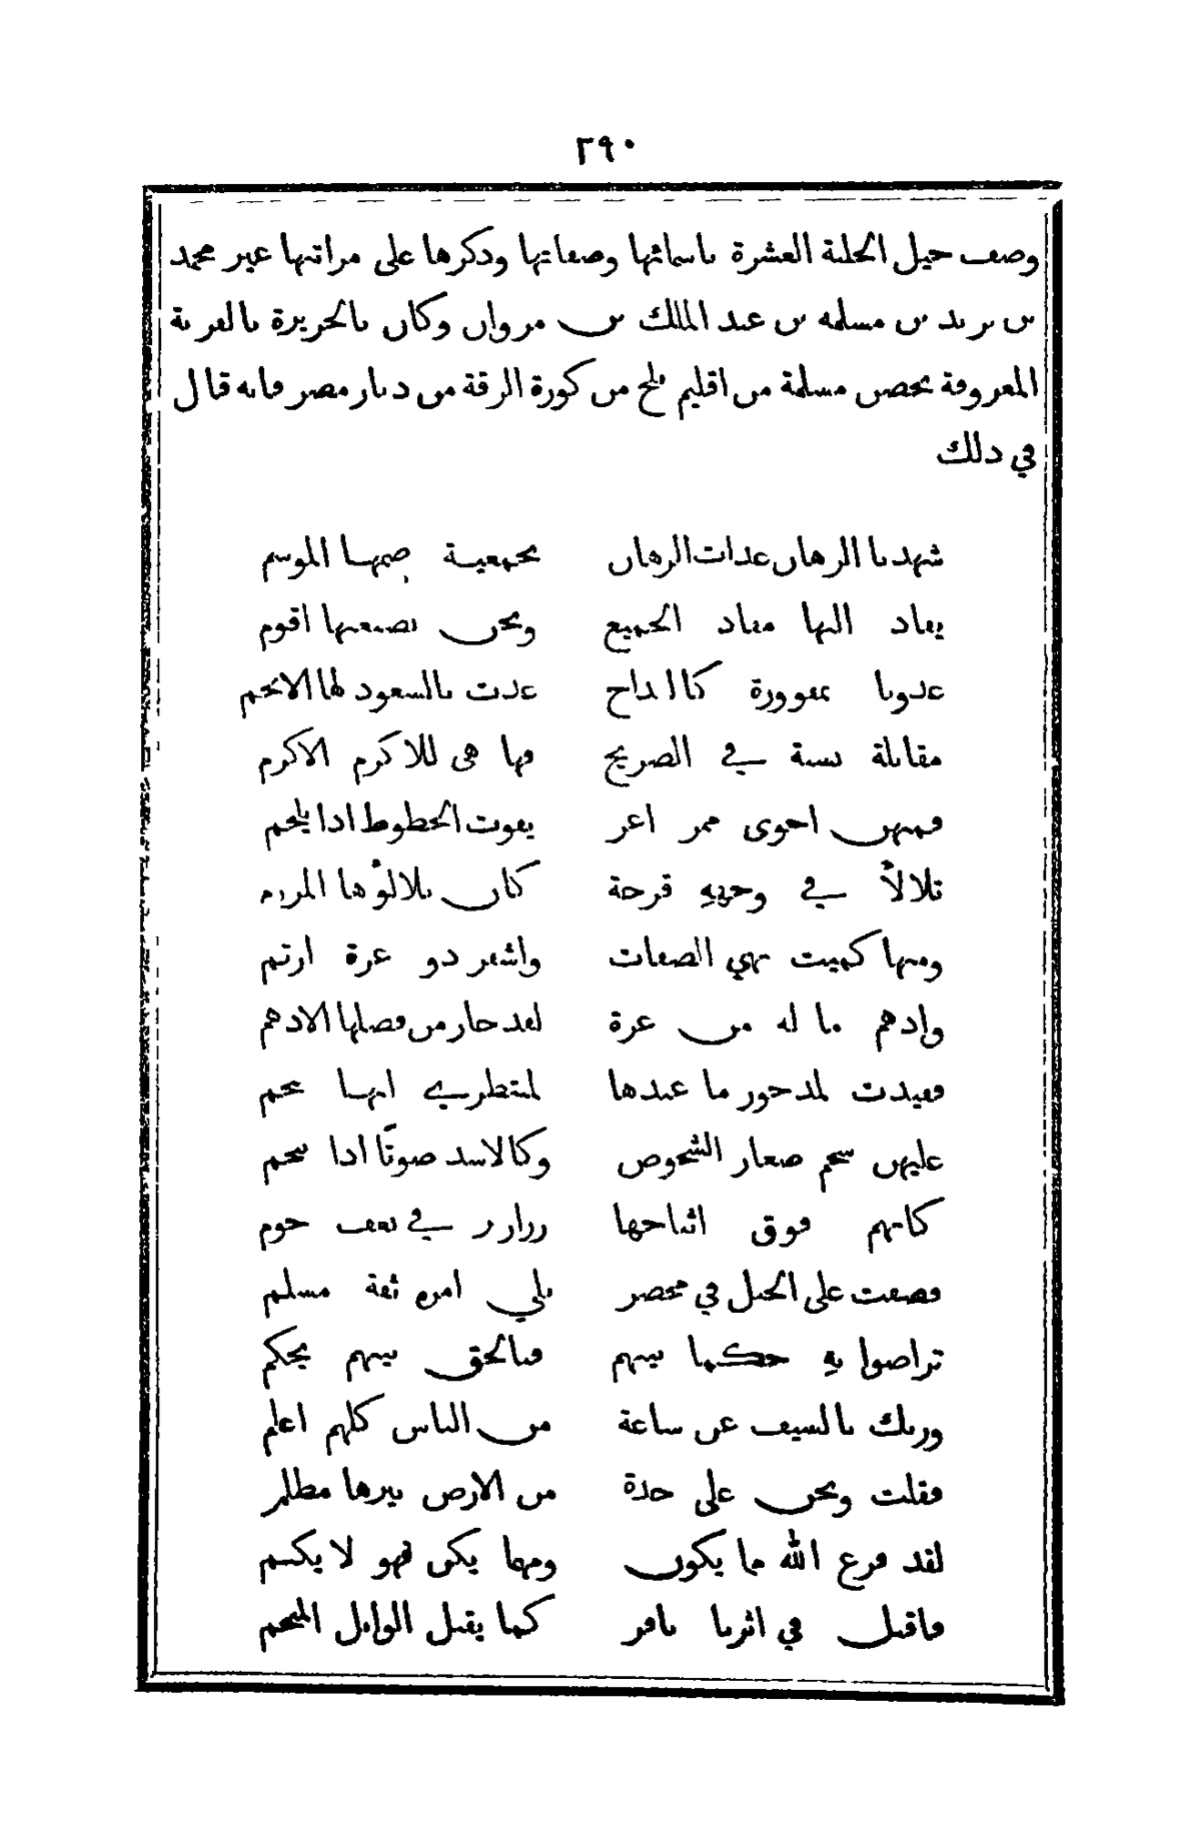 ٢٩٠
وصف خيل الحلبة العشرة باسمائها وصفاتها وذكرها على مراتبها غير محمد
بن يزيد بن مسلمه بن عبد الملك بن مروان وكان بالجزيرة بالقرية
المعروفة بحصن مسلمة من اقليم بلخ من كورة الرقة من ديار مصر فانه قال
في ذلك
شهدنا الرهان غداة الرهان بجمعية ضمها الموسم
يقاد اليها مقاد الجميع ونحن بصنعتها اقوم
غدونا بمقوورة كالقداح غدت بالسعود لها الانجم
مقابلة نسبة في الصريح فها هي للاكرم الاكرم
فمنهن احوى ممر اغر يفوت الخطوط اذا يلجم
تلألأ في وجهه قرحة كان تلألؤها المرزم
ومنها كميت بهي الصفات واشقر ذو غرة ارثم
وادهم ما له من غرة لقد حاز من فضلها الادهم
فقيدت لمدخور ما عندها لمنتظري ايها ينجم
عليهن سحم صغار الشخوص وكالاسد صوتًا اذا
كانهم فوق اثباجها زرازر في نفنف حوم
فصفت على الحبل في محضر يلي امره ثقة مسلم
تراضوا به حكما بينهم فبالحق بينهم يحكم
وربك بالسيف عن ساعة من الناس كلهم اعلم
فقلت ونحن على جدة من الارض نيرها مظلم
لقد فرغ الله مما يكون ومهما يكن فهو لا يكتم
فاقبل في اثرنا نافر كما يقبل الوابل المثجم